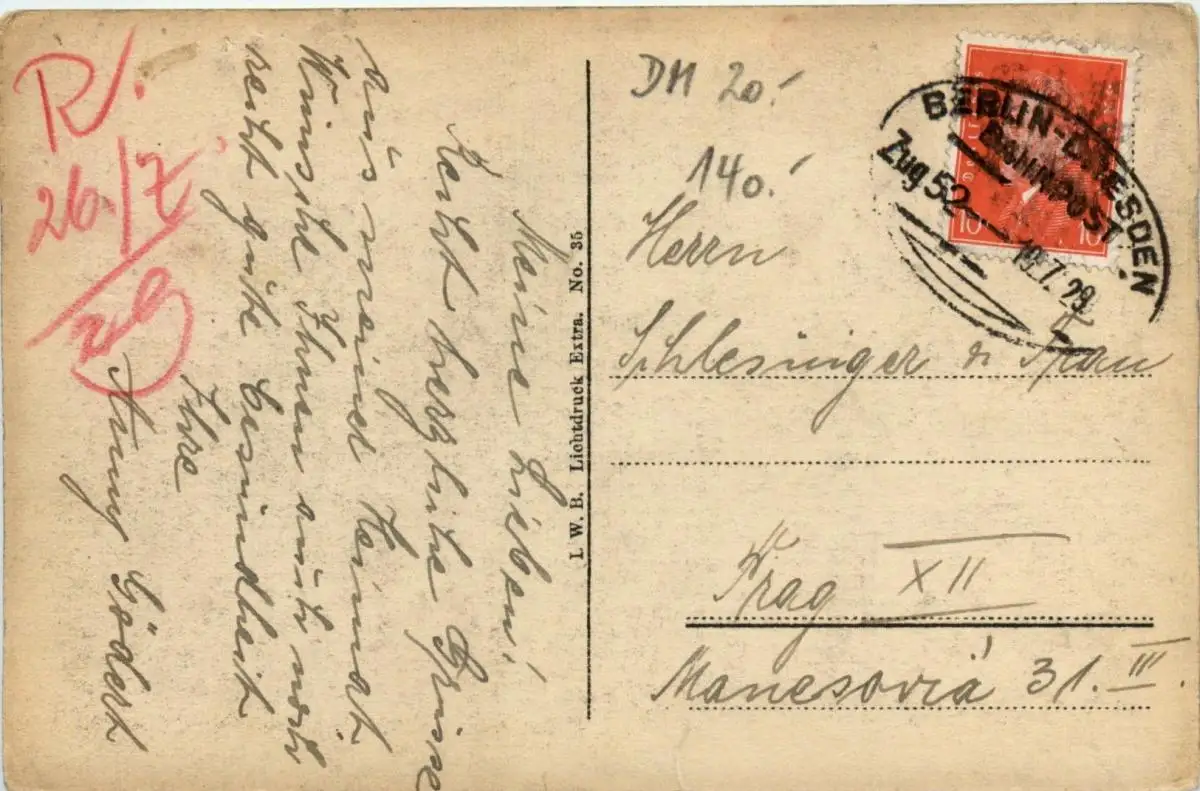 R.
26/7
29
Meine Lieben!
Recht herzliche Grüsse
aus meiner Heimat
Wünsche Ihnen auch noch
recht gute Gesundheit
Ihre
Gödert
I. W. B. Lichtdruck Extra. No. 35
DM 20.-
140.-
BERLIN-DRESDEN
BAHNPOST
Zug 52
19.7.29
10 10
Herrn
Schlesinger &
Prag XII
Manesová 31. III.